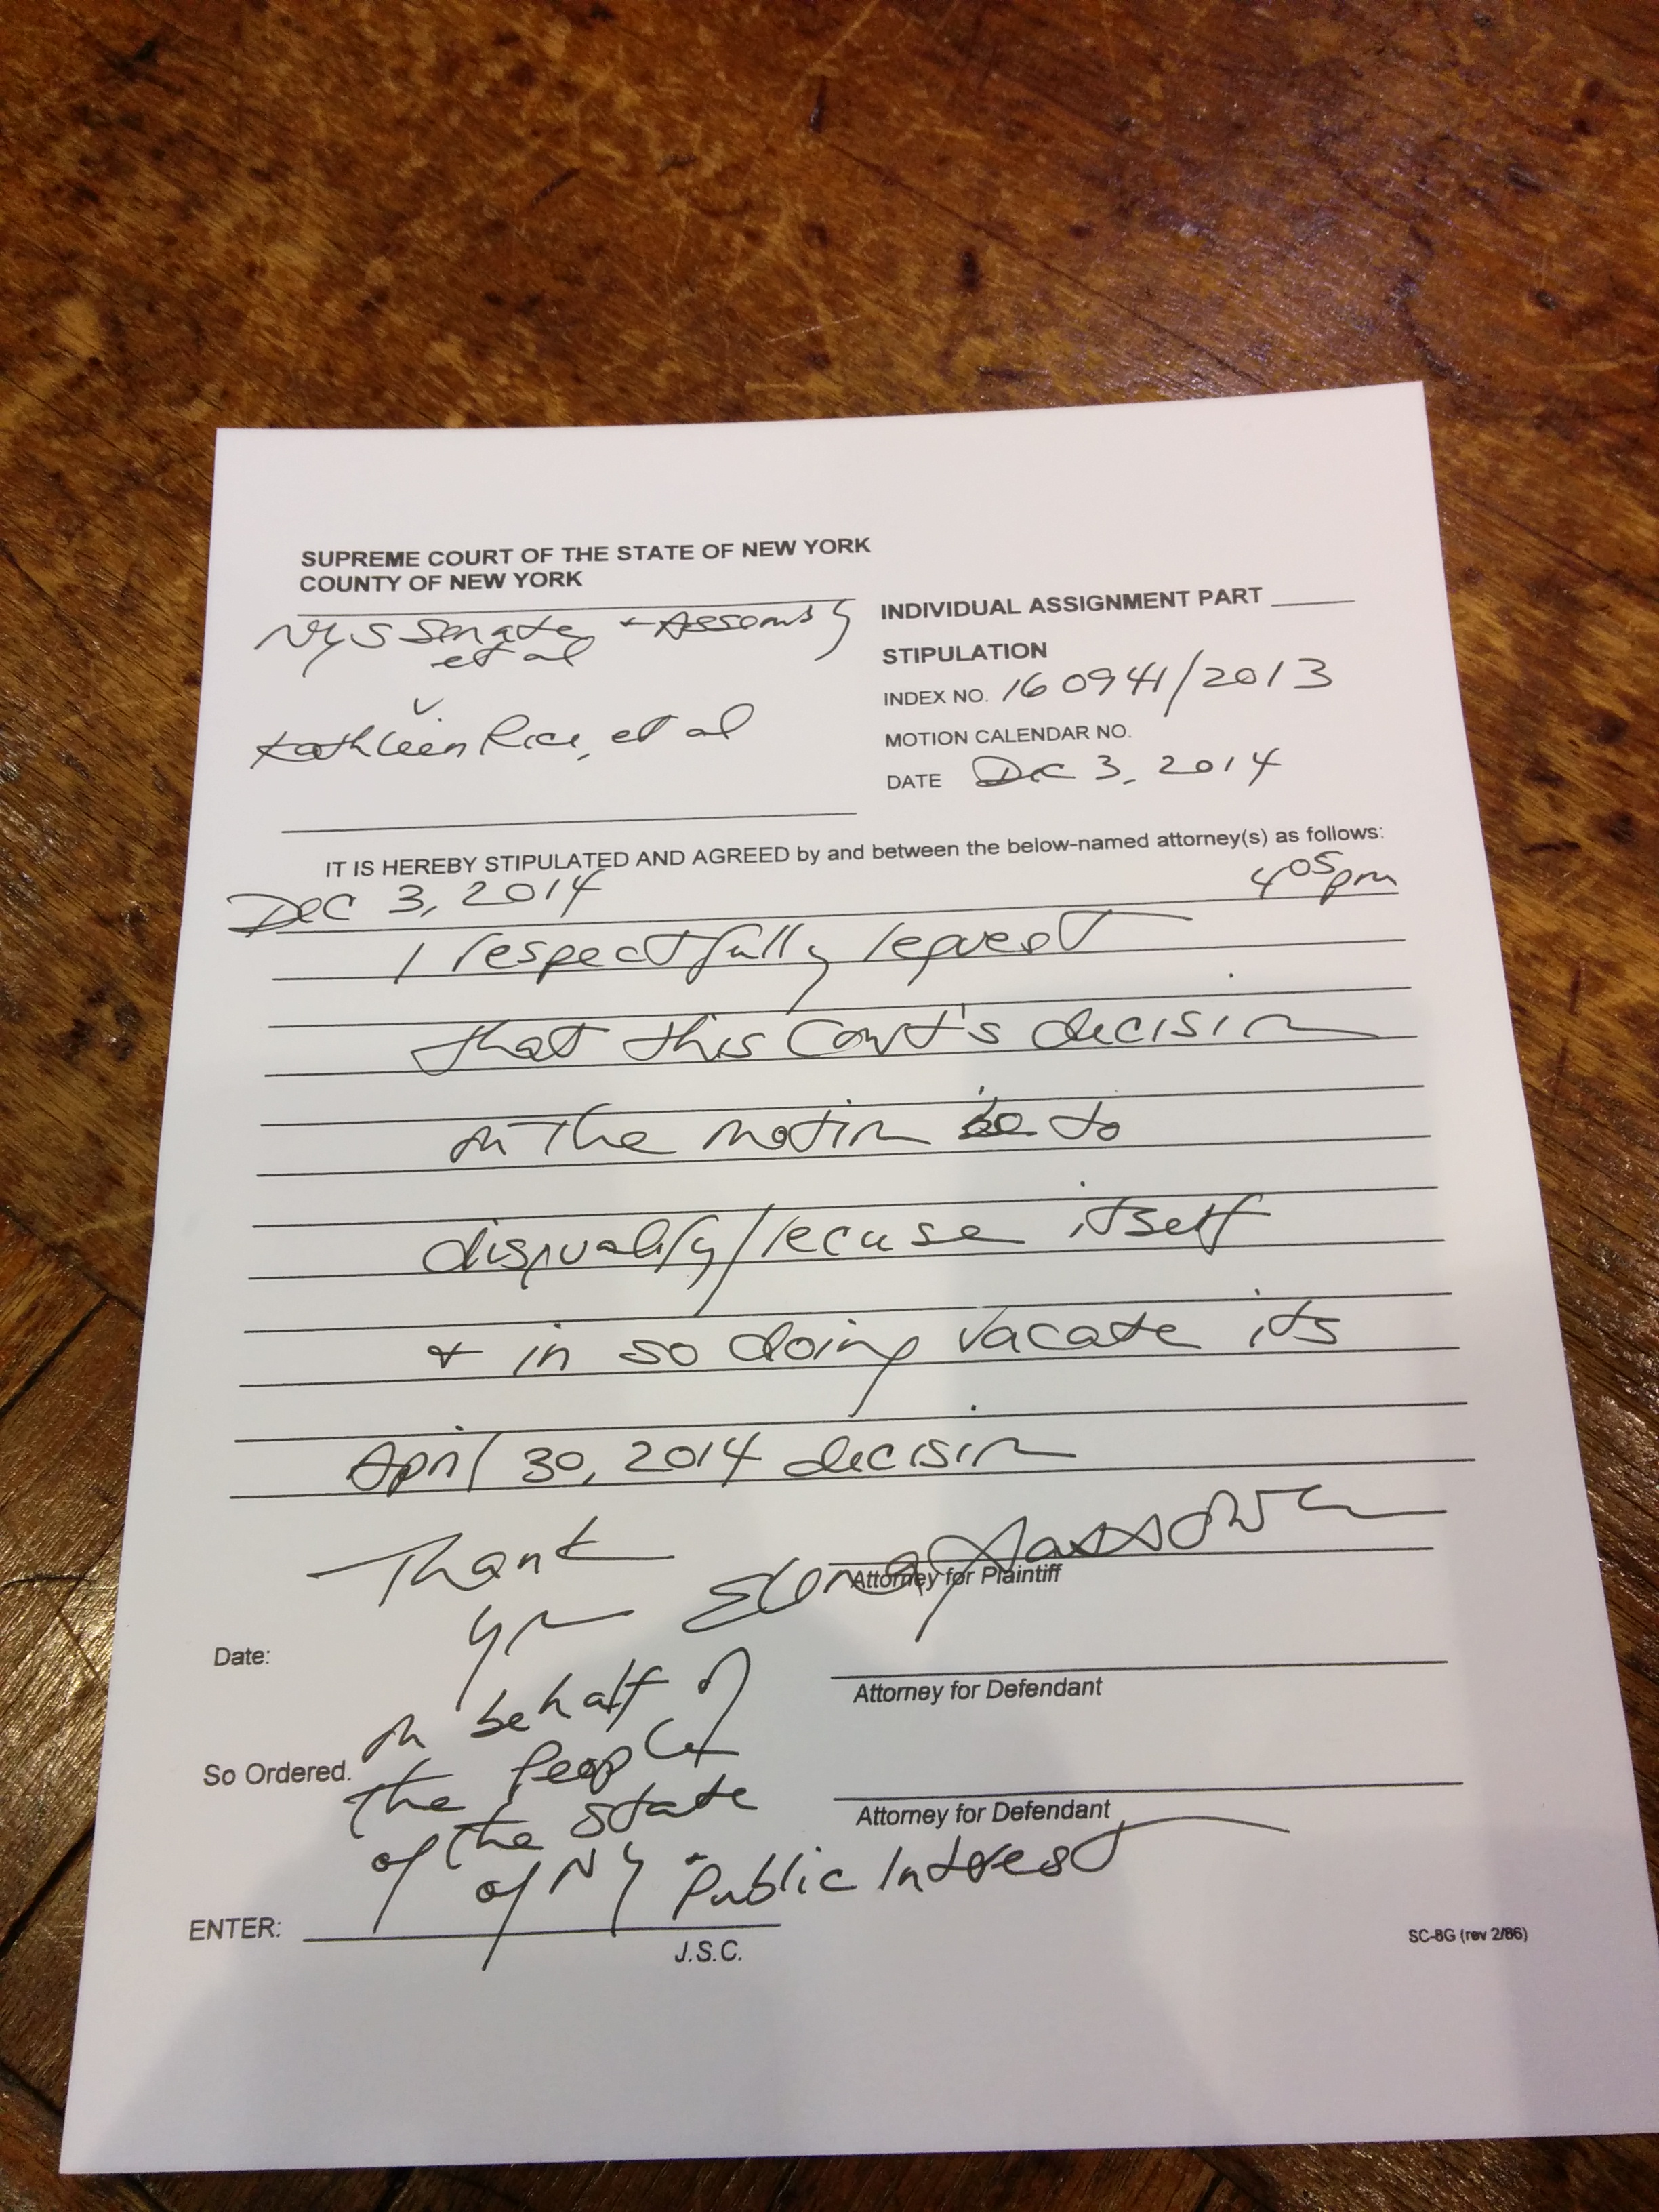 SUPREME COURT OF THE STATE OF NEW YORK
COUNTY OF NEW YORK
NYS Senate + Assembly
et al
v.
Kathleen Rice, et al
INDIVIDUAL ASSIGNMENT PART
STIPULATION
INDEX NO. 160941/2013
MOTION CALENDAR NO.
DATE Dec 3, 2014
IT IS HEREBY STIPULATED AND AGREED by and between the below-named attorney(s) as follows:
Dec 3, 2014 4 05 pm
I respectfully request
that this Court's decision
on the motion be to
disqualify/recuse itself
+ in so doing vacate its
April 30, 2014 decision
Thank
you
Elena Sassower
Attorney for Plaintiff
Date:
Attorney for Defendant
So Ordered.
on behalf of
the People
of the State
of NY + Public Interest
Attorney for Defendant
ENTER:
J.S.C.
SC-8G (rev 2/86)